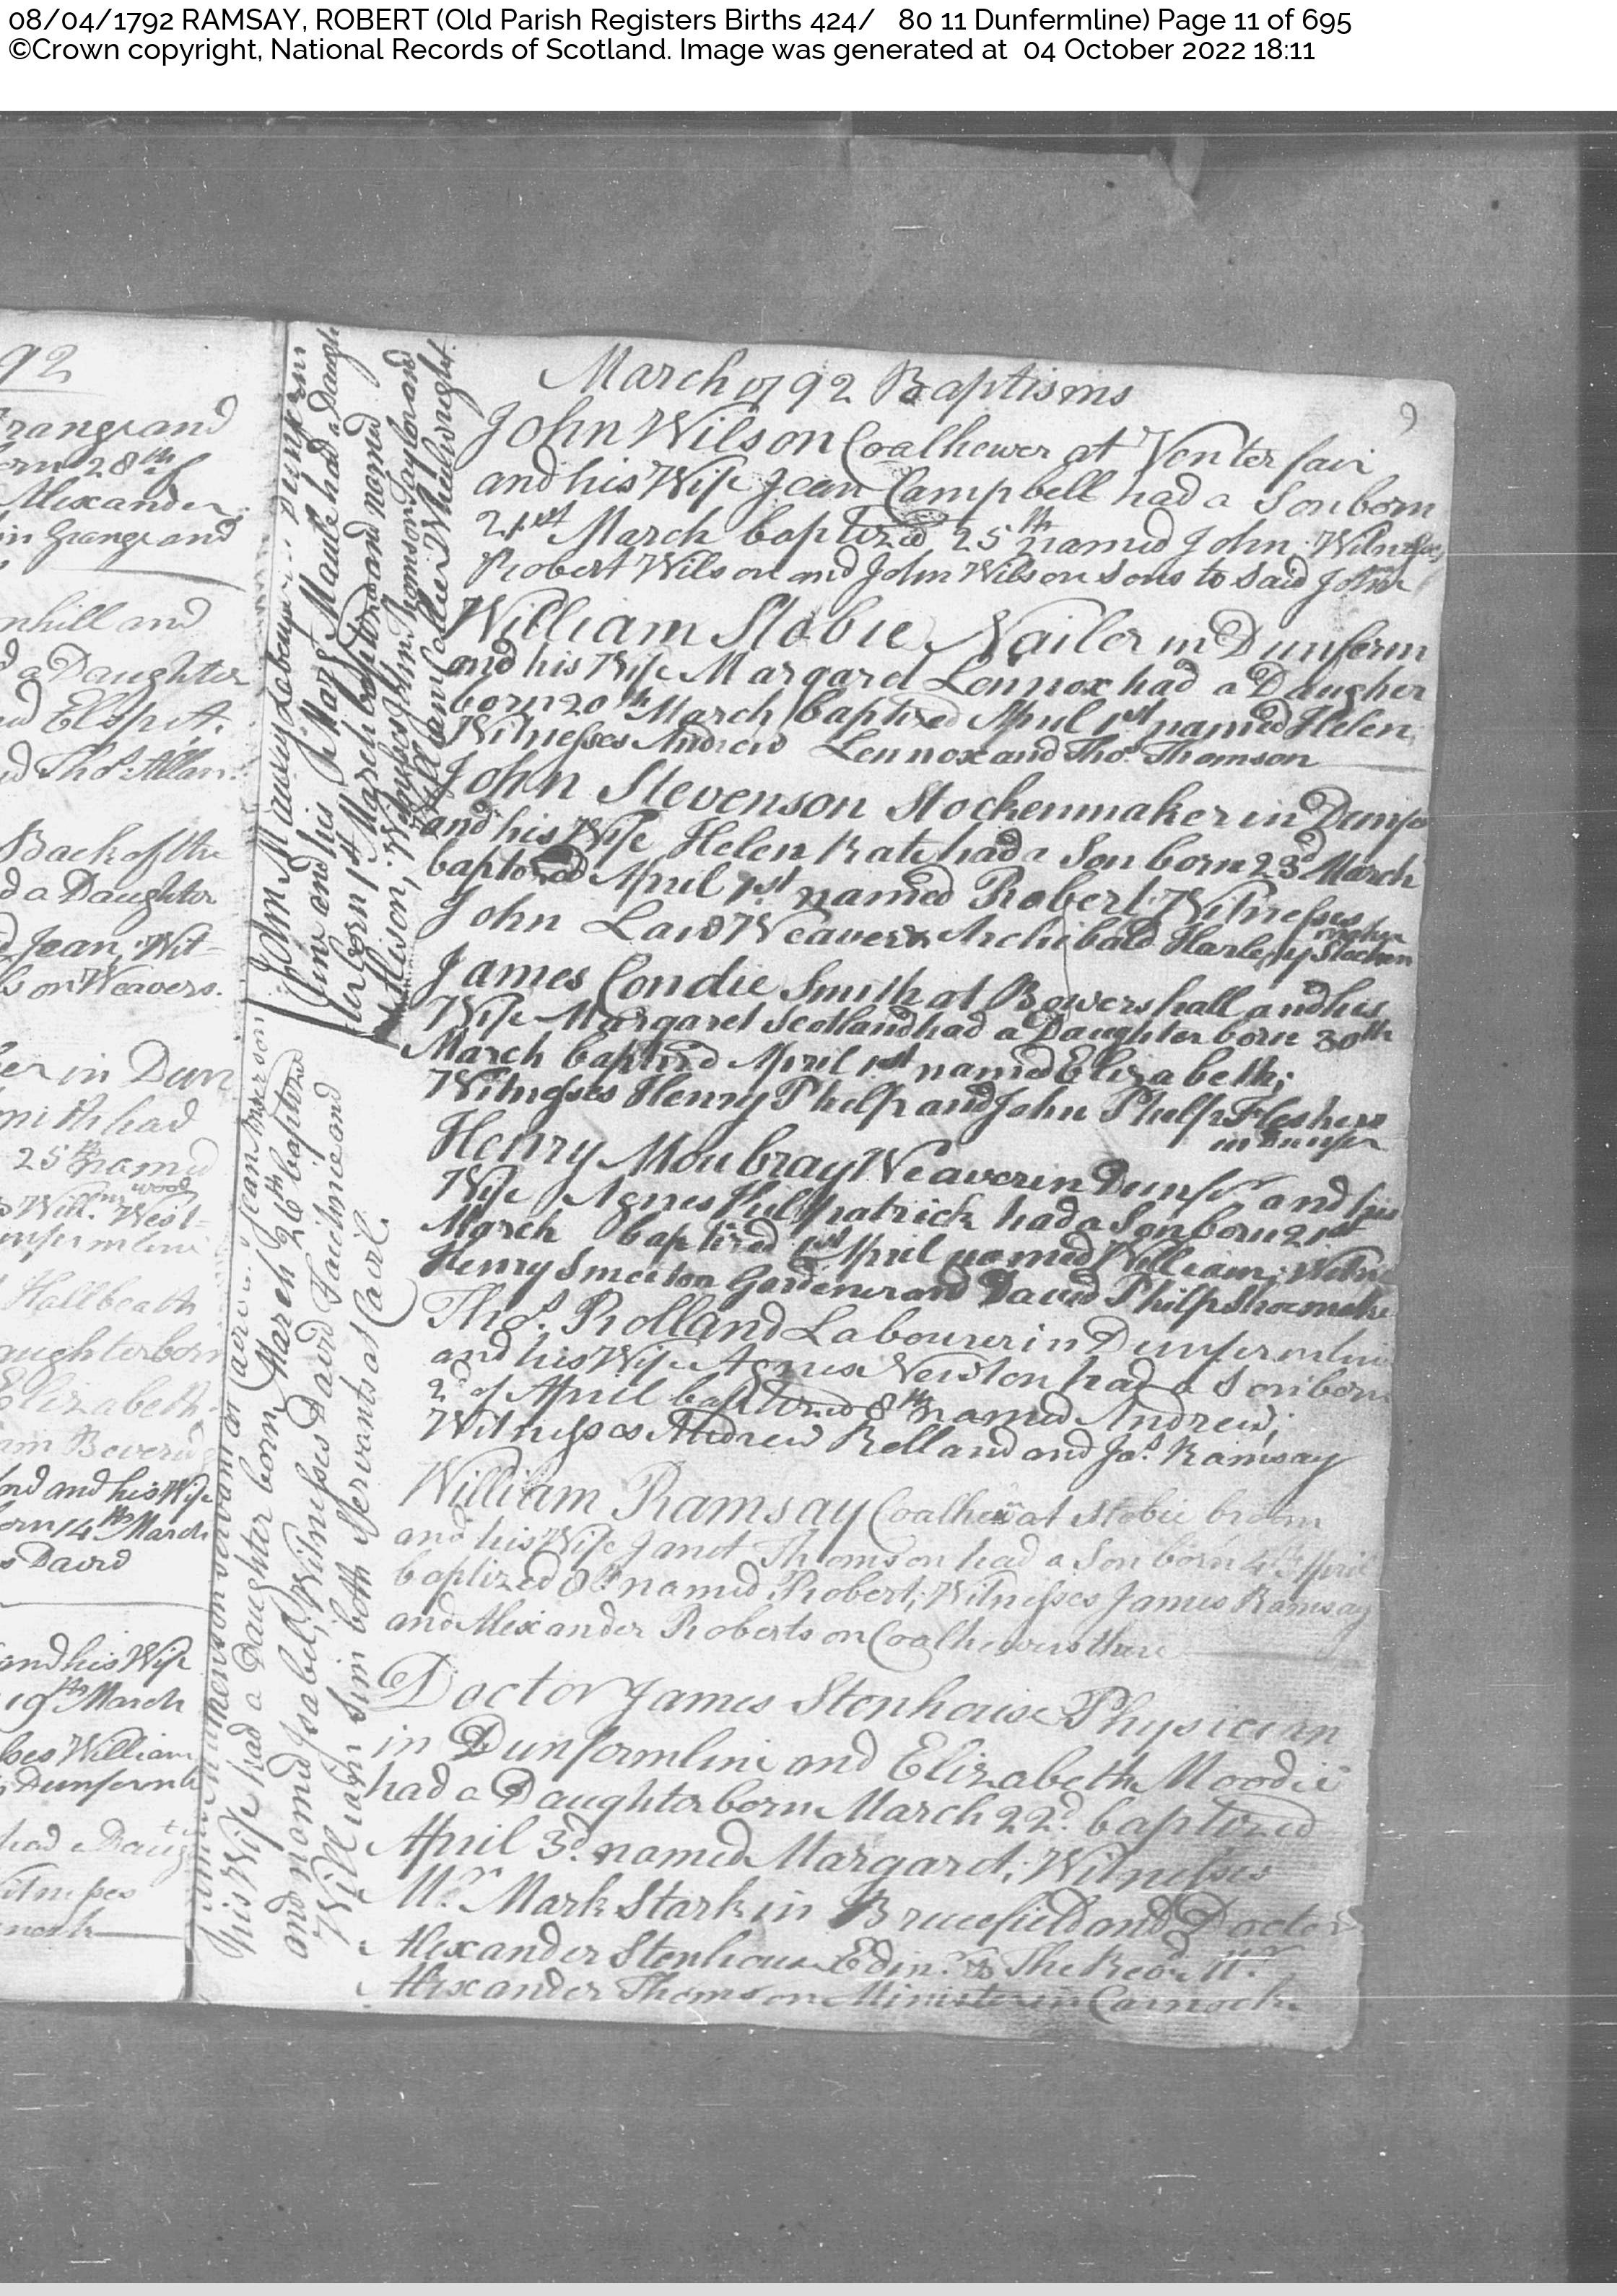 08/04/1792 RAMSAY, ROBERT (Old Parish Registers Births 424/ 80 11 Dunfermline) Page 11 of 695
©Crown copyright, National Records of Scotland. Image was generated at 04 October 2022 18:11
92
Grange and
born 28th of
Alexander
in Grange and
nhill and
d a Daughter
Elspit.
Thos. Allan.
Back of the
d a Daughter
d Jean, Wit-
son Weavers.
er in Dun
had
25th named
wood
Willm. West-
Hallbeath
aughter born
Elizabeth.
am Beverid
and his Wife
orn 14th March
s David
and his Wife
19th March
ses William
Dunfermli
had Daug
itnesses
his Wife had a Daughter born March 26th baptized
and named Isabel; Witnesses David
William Sim both Servants at Cairl.
John Labourer in Dunferm
line and his Wife Mary Maule had a Daugh
ter born 1st March baptized and named
Alison; Witnesses Thomson Taylor and
William Wheelwright.
9
March 1792 Baptisms
John Wilson Coalhewer at Venterfair
and his Wife Jean Campbell had a Son born
21st March baptized 25th named John. Witnesses
Robert Wilson and John Wilson Sons to said John
William Stobie Nailer in Dunferm
and his Wife Margaret Lennox had a Daugher
born 20th March baptized April 1st named Helen;
Witnesses Andrew Lennox and Thos. Thomson
John Stevenson Stockenmaker in Dunfer
and his Wife Helen Kate had a Son born 23d March
baptized April 1st named Robert; Witnesses
John Law Weaver & Archibald Harley Stocken
maker
James Condie Smith at Bowershall and his
Wife Margaret Scotland had a Daughter born 30th
March baptized April 1st named Elizabeth;
Witnesses Henry Phelp and John Phelp Fleshers
in Dunfer
Henry Moubray Weaver in Dunfer and his
Wife Agnes had a Son born 21st
March baptized 1st April named William; Witne
Henry Smeiton Gardener and David Philp Shoemake
Thos. Rolland Labourer in Dunfermlin
and his Wife Agnes Newton had a Son born
2d of April baptized 8th named Andrew;
Witnesses Andrew Rolland and Jas. Ramsay
William Ramsay Coalher at Stobie broom
and his Wife Janet Thomson had a Son born 4th April
baptized 8th named Robert; Witnesses James Ramsay
and Alexander Robertson Coalhewers there
Doctor James Stenhouse Physician
in Dunfermline and Elizabeth Moodie
had a Daughter born March 22d. baptized
April 3d. named Margaret; Witnesses
Mr. Mark Stark in Brucefield and Doctor
Alexander Stenhouse Edinr. & The Revd. Mr.
Alexander Thomson Minister in Carnock.